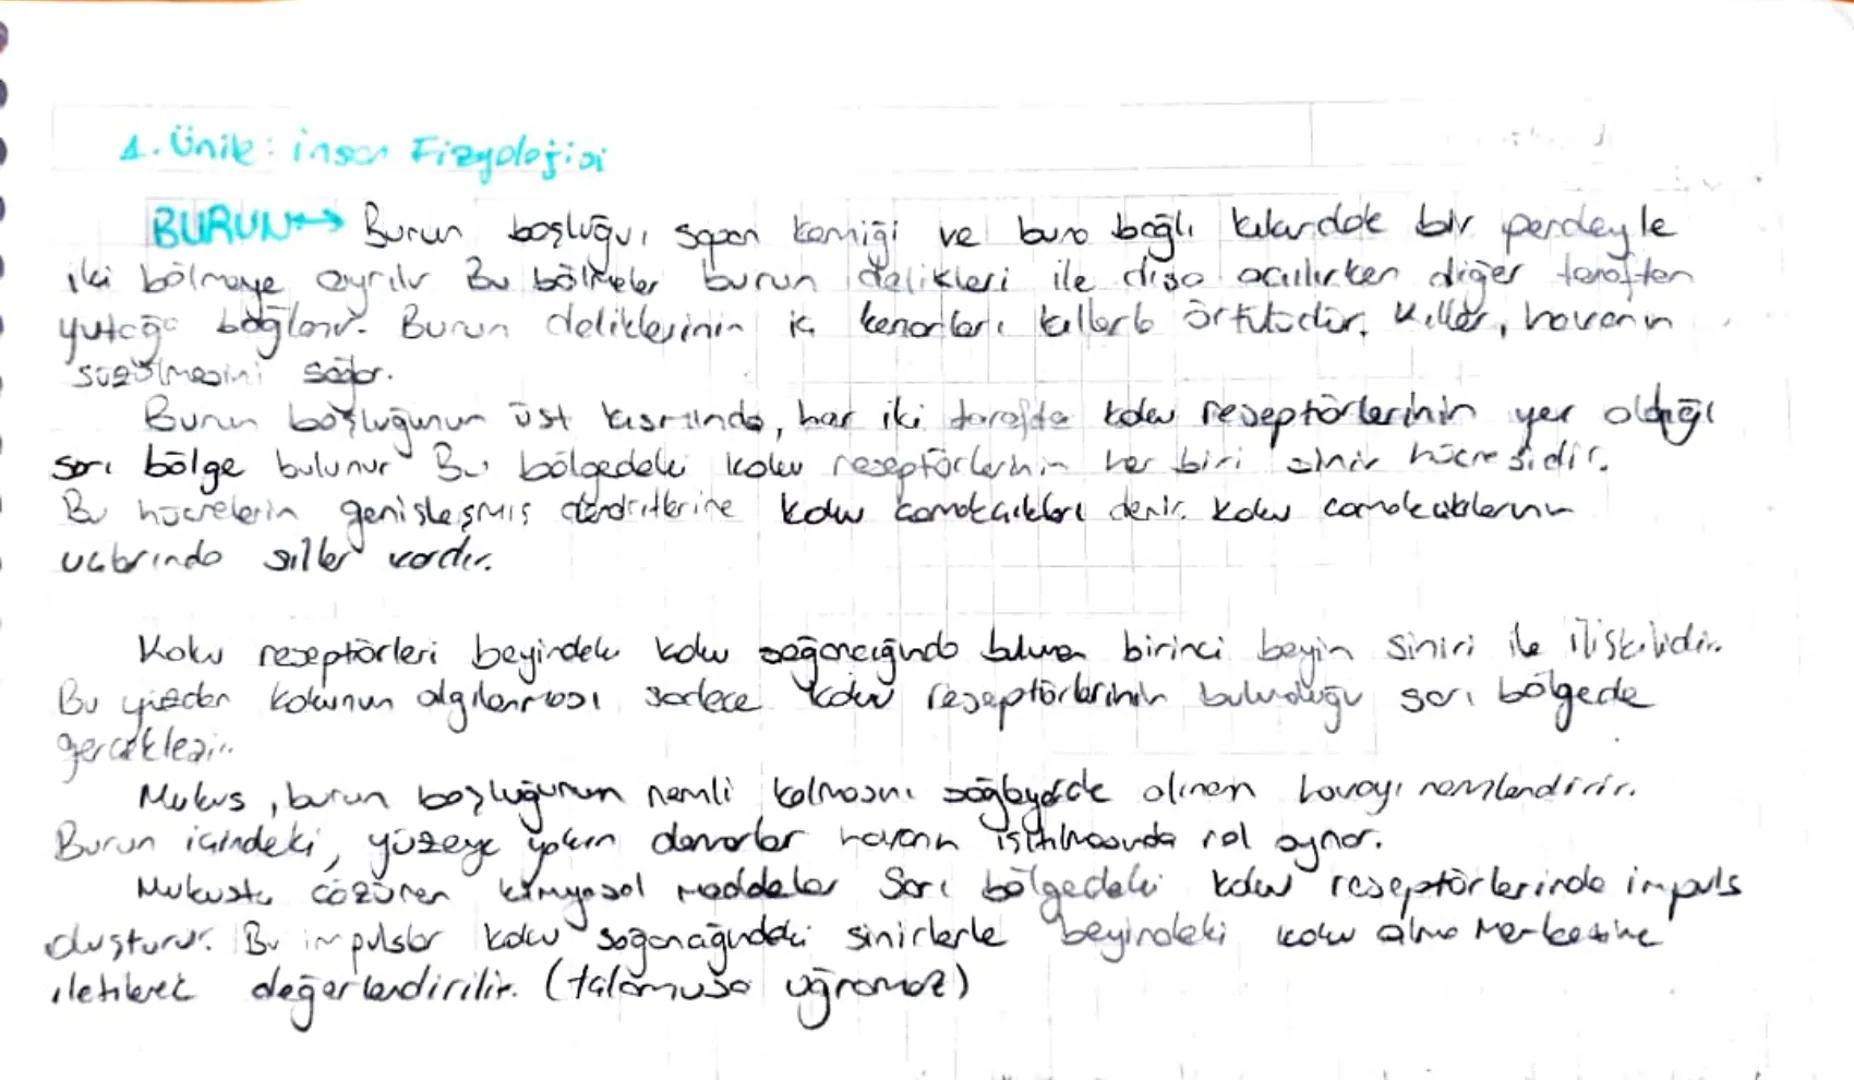 1. Ünite: İnsan Fizyolojisi
BURUN → Burun boşluğu, sapan kemiği ve buna bağlı kıkırdak bir perdeyle
iki bölmeye ayrılır Bu bölmeler burun delikleri ile dışa açılırken diğer taraftan
yutağa bağlanır. Burun deliklerinin iç kenarları kıllarla örtülüdür. Kıllar, havanın
süzülmesini sağlar.
Burun boşluğunun üst kısmında, her iki tarafta koku reseptörlerinin yer aldığı
sarı bölge bulunur Bu bölgedeki koku reseptörlerinin her biri sinir hücresidir.
Bu hücrelerin genişleşmiş dendritlerine koku çomakçıkları denir. Koku çomakçıklarının
uçlarında siller vardır.
Koku reseptörleri beyindeki koku soğancığında bulunan birinci beyin siniri ile ilişkilidir.
Bu yüzden kokunun algılanması sadece koku reseptörlerinin bulunduğu sarı bölgede
gerçekleşir.
Mukus, burun boşluğunun nemli kalmasını sağlayarak alınan havayı nemlendirir.
Burun içindeki, yüzeye yakın damarlar havanın ısıtılmasında rol oynar.
Mukusta çözünen kimyasal maddeler Sarı bölgedeki koku reseptörlerinde impuls
oluşturur. Bu impulslar koku soğancığındaki sinirlerle beyindeki koku alma Merkezine
iletilerek değerlendirilir. (talamusa uğramaz)